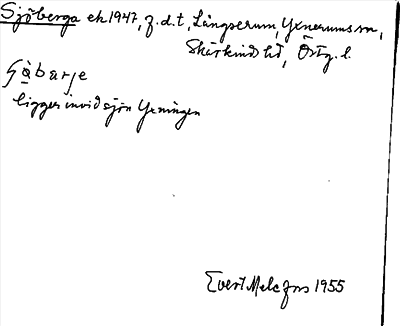 Sjöberga ek 1947, f.d.t, Långserum, Yxnerums sn,
Skärkinds hd, Östg. l.
ligger invid sjön Yxningen
Evert Melefors 1955